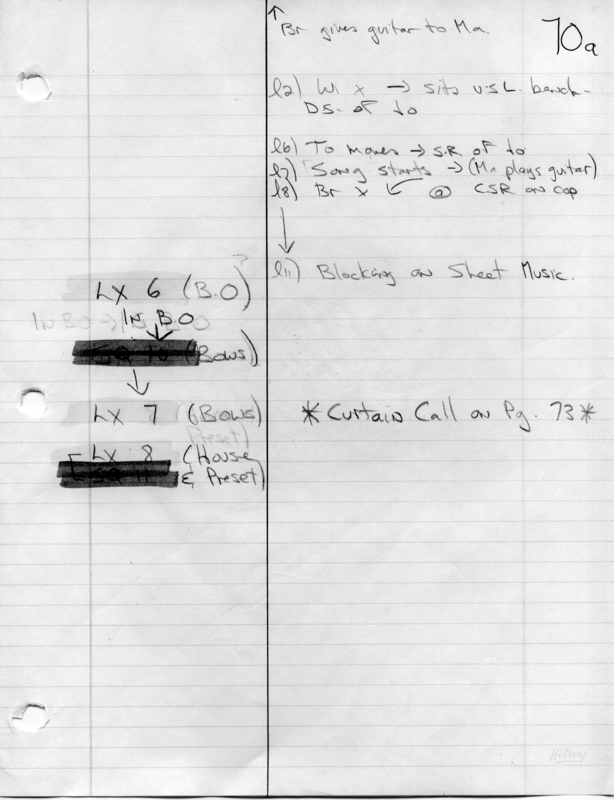 70a
↑ Br gives guitar to Ma.
l2) Wi x → sits U.S.L. bench-
DS. of to
l6) To moves → S.R of to
l7) Song starts → (Ma plays guitar)
l8) Br x ↙ @ CSR on cop
l11) Blocking on Sheet Music.
LX 6 (B.O)
IN B.O
SQ 10 (Bows)
LX 7 (Bows)
Preset)
* Curtain Call on Pg. 73 *
LX 8 (House
SQ 11 & Preset)
Hilroy